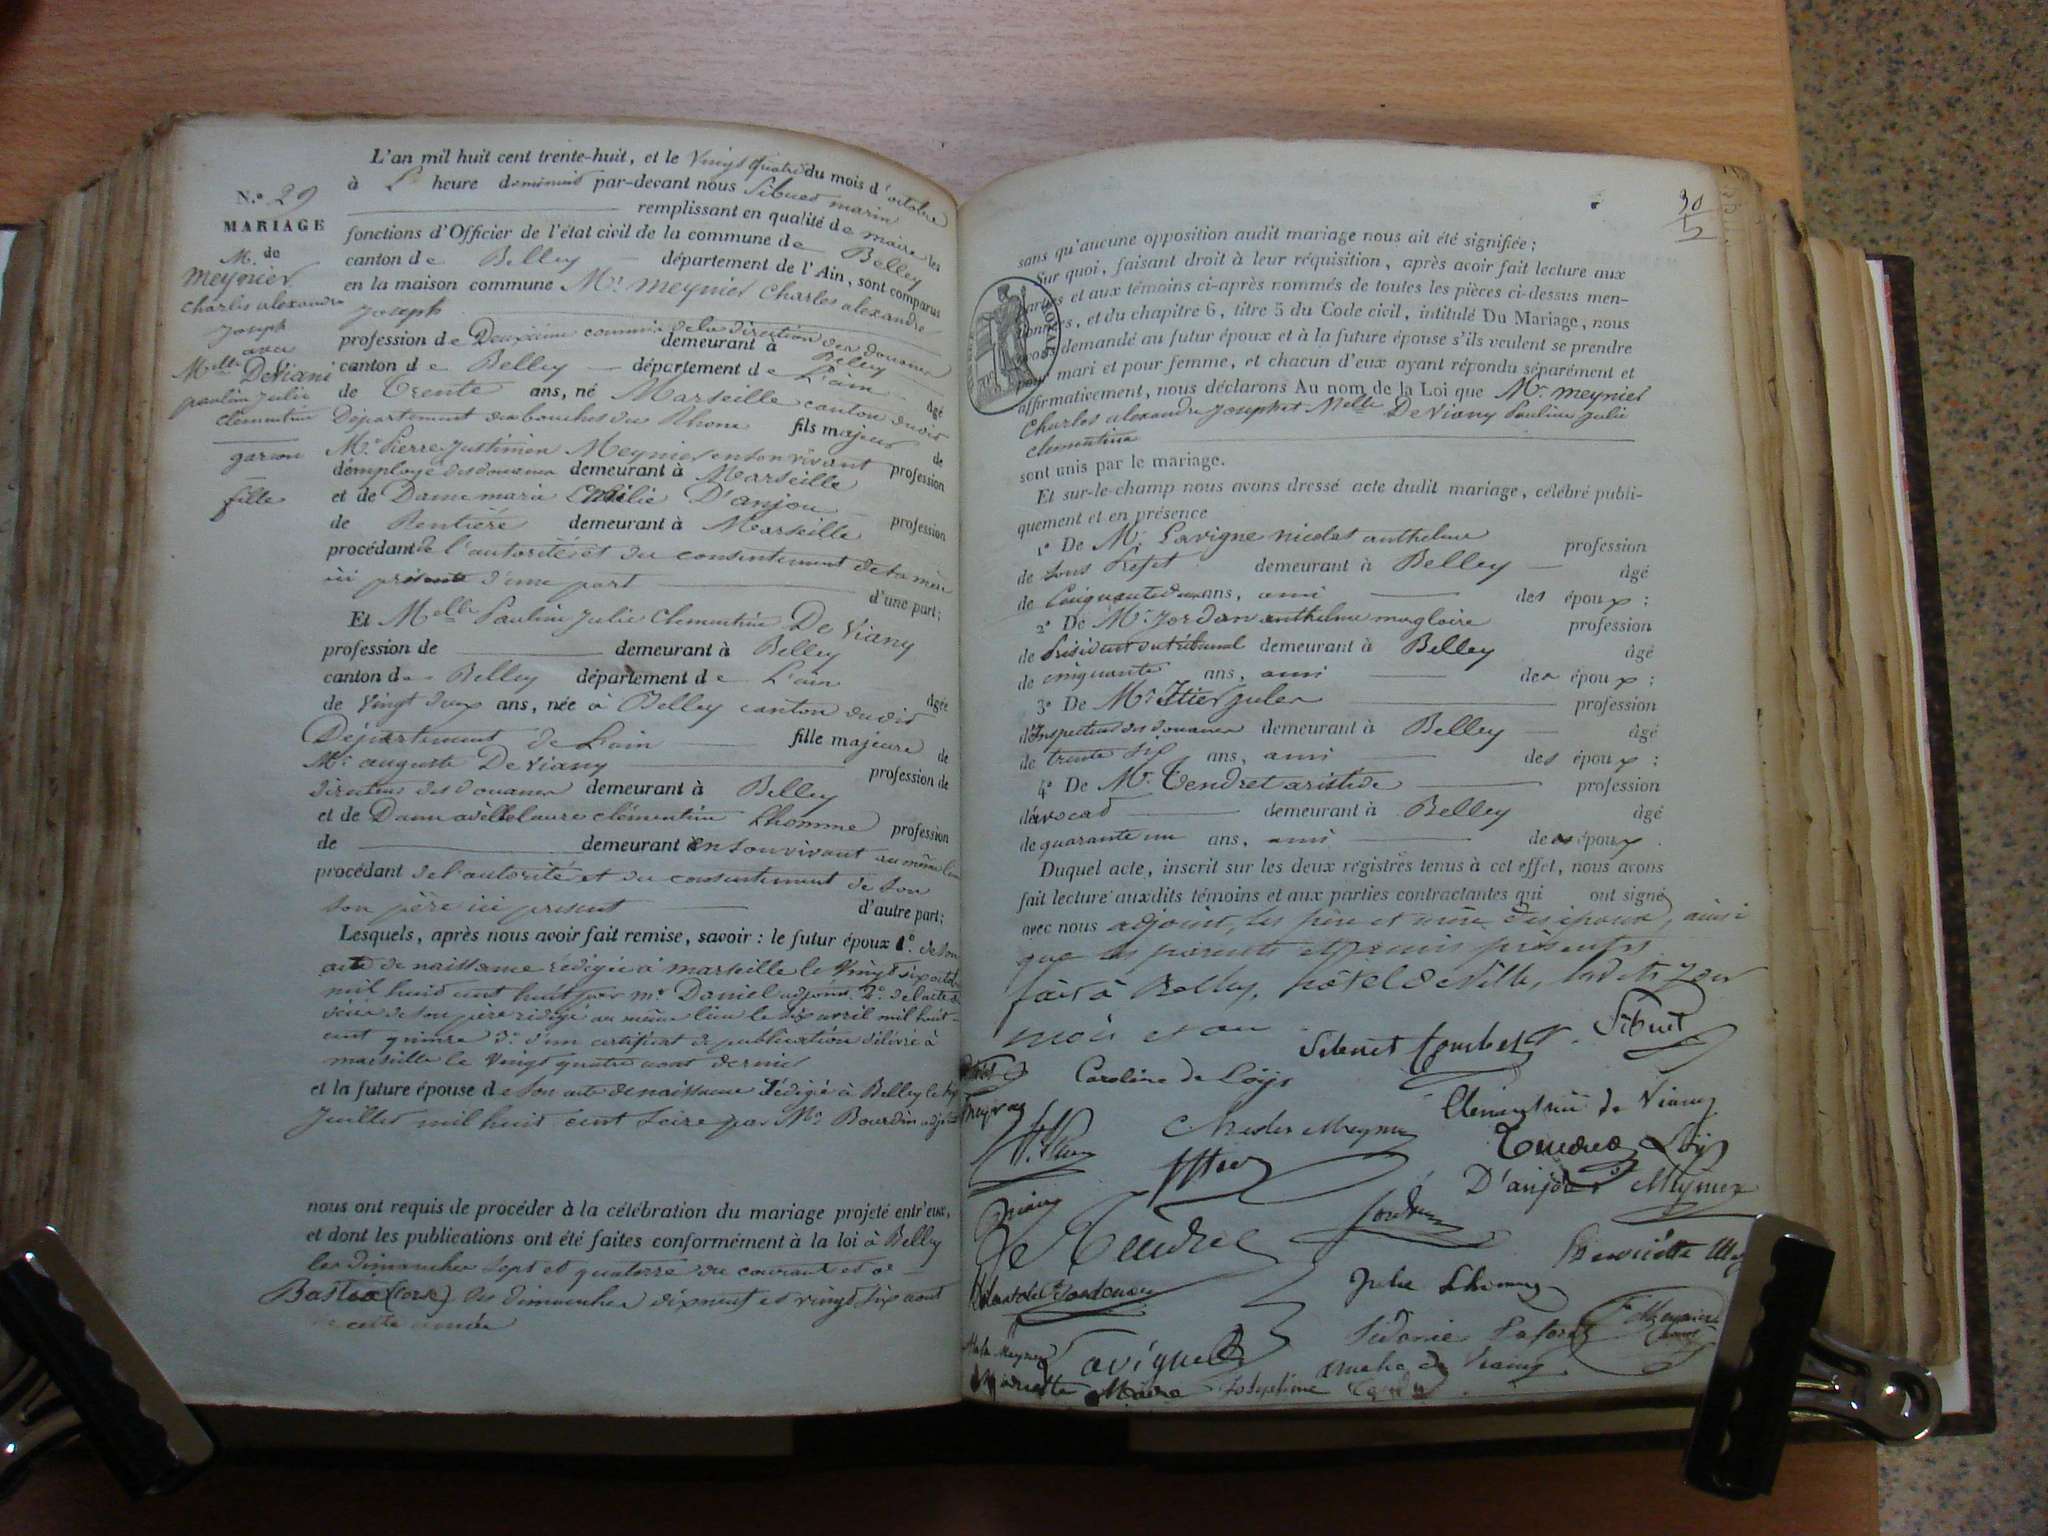 L'an mil huit cent trente-huit, et le vingt quatre du mois d'octobre
à L' heure de minuit par-devant nous Sibuet marin
remplissant en qualité de maire les
N.º 29
MARIAGE
de
M.
meynier
charles alexandre
Joseph
avec
Melle DeViani
pauline Julie
clémentine
garcon
fille
fonctions d'Officier de l'état civil de la commune de Belley
canton de Belley département de l'Ain, sont comparus
en la maison commune Mr. meynier charles alexandre
Joseph
profession de Deuxième commis de la direction des douanes demeurant à Belley
canton de Belley département de L'ain âgé
de Trente ans, né Marseille canton dudit
Département des bouches du Rhone fils majeur de
Mr. Pierre Justinien Meynier en son vivant profession
d'employé des douanes demeurant à Marseille
et de Dame marie D'anjou profession
de Rentière demeurant à Marseille
procédant de l'autorité et du consentement de sa mère
ici présente d'une part d'une part;
Et Melle Pauline Julie Clémentine De Viany
profession de demeurant à Belley
canton de Belley département de L'ain âgée
de vingt deux ans, née à Belley canton dudit
Département de L'ain fille majeure de
Mr. auguste De Viany profession de
directeur des douanes demeurant à Belley
et de Dame clémentine Lhomme profession
de demeurant en son vivant au même lieu
procédant de l'autorité et du consentement de son
son père ici présent d'autre part;
Lesquels, après nous avoir fait remise, savoir : le futur époux 1º. de son
acte de naissance rédigée à marseille le vingt six octobre
mil huit cent huit par mr Daniel adjoint 2º. de l'acte de
décès de son père rédigé au même lieu le six avril mil huit
cent quinze 3º. d'un certificat de publication délivré à
marseille le vingt quatre aout dernier
et la future épouse de son acte de naissance rédigé à Belley le
Juillet mil huit cent seize par Mr. Bourdin adjoint
nous ont requis de procéder à la célébration du mariage projeté entr'eux,
et dont les publications ont été faites conformément à la loi à Belley
les dimanches sept et quatorze du courant et à
Bastia (corse) les dimanches dix neuf et vingt six aout
de cette année
30
sans qu'aucune opposition audit mariage nous ait été signifiée;
Sur quoi, faisant droit à leur réquisition, après avoir fait lecture aux
parties et aux témoins ci-après nommés de toutes les pièces ci-dessus men-
tionnées, et du chapitre 6, titre 5 du Code civil, intitulé Du Mariage, nous
avons demandé au futur époux et à la future épouse s'ils veulent se prendre
pour mari et pour femme, et chacun d'eux ayant répondu séparément et
affirmativement, nous déclarons Au nom de la Loi que Mr. meynier
ROYAL
charles alexandre Joseph et Melle De Viany Pauline Julie
clementine
sont unis par le mariage.
Et sur-le-champ nous avons dressé acte dudit mariage, célébré publi-
quement et en présence
1º De Mr. Lavigne nicolas anthelme profession
de Sous Préfet demeurant à Belley âgé
de Cinquante deux ans, ami des époux;
2º De Mr. Jordan anthelme magloire profession
de Président du tribunal demeurant à Belley âgé
de cinquante ans, ami des époux;
3º De Mr. Itier Jules profession
d'Inspecteur des douanes demeurant à Belley âgé
de trente six ans, ami des époux;
4º De Mr. Tendret aristide profession
d'avocat demeurant à Belley âgé
de quarante un ans, ami des époux.
Duquel acte, inscrit sur les deux registres tenus à cet effet, nous avons
fait lecture auxdits témoins et aux parties contractantes qui ont signé
avec nous adjoint, les père et mère des époux, ainsi
que les parents et amis présents
fait à Belley, hôtel de ville, lesdits jour
mois et an
Sibuet
Caroline de Loÿs
Clémentine de Viany
Charles Meynier
Itier
Tendret Loÿs
D'anjou Meynier
Viany
Tendret
Jordan
Henriette
Julie Lhomme
Lavigne
Sidonie
Meynier
de Viany
Marietta
Joséphine